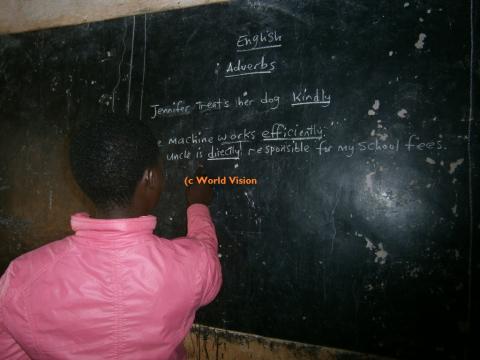 English
Adverbs
Jennifer treats her dog kindly
machine works efficiently.
uncle is directly responsible for my school fees.
(c World Vision